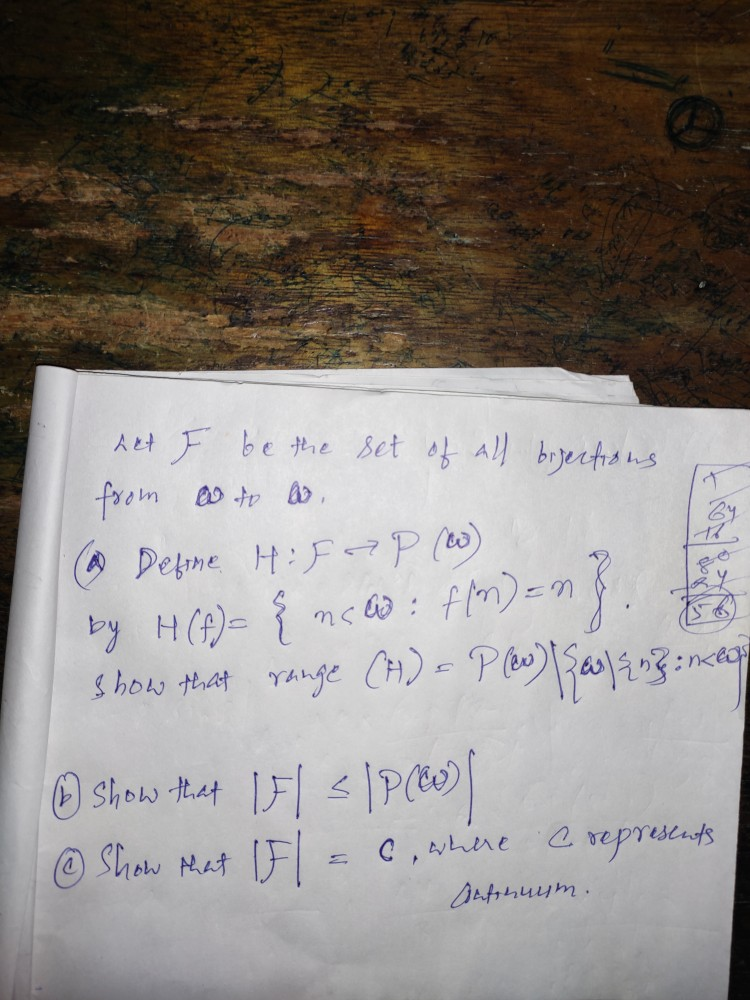 Let F be the set of all bijections
from ω to ω.
(a) Define H : F → P(ω)
by H(f) = { n < ω : f(n) = n }.
Show that range (H) = P(ω) \ {ω \ {n} : n < ω}
(b) Show that |F| ≤ |P(ω)|
(c) Show that |F| = c, where c represents
Continuum.
56